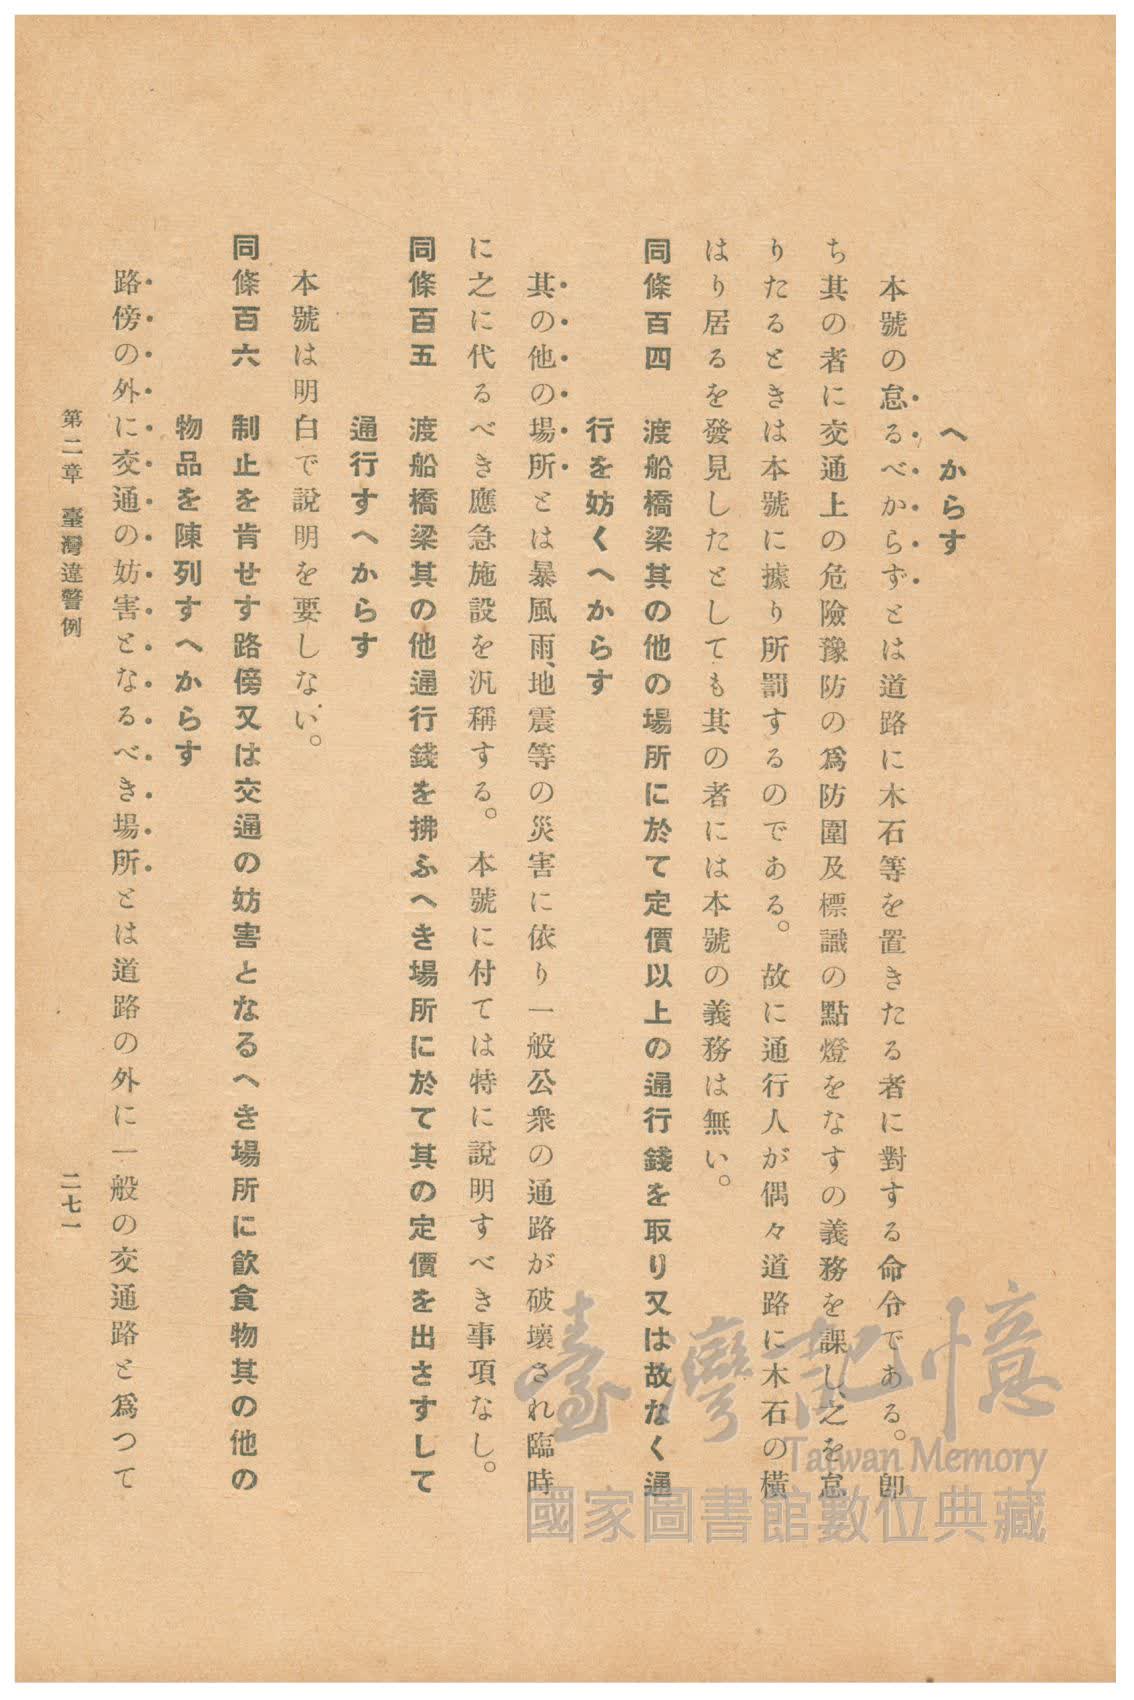 へからす
本號の怠るべからずとは道路に木石等を置きたる者に對する命令である。卽
ち其の者に交通上の危險豫防の爲防圍及標識の點燈をなすの義務を課し、之を怠
りたるときは本號に據り所罰するのである。故に通行人が偶々道路に木石の横
はり居るを發見したとしても其の者には本號の義務は無い。
同條百四　渡船橋梁其の他の場所に於て定價以上の通行錢を取り又は故なく通
行を妨くへからす
其の他の場所とは暴風雨、地震等の災害に依り一般公衆の通路が破壞され臨時
に之に代るべき應急施設を汎稱する。本號に付ては特に說明すべき事項なし。
同條百五　渡船橋梁其の他通行錢を拂ふへき場所に於て其の定價を出さすして
通行すへからす
本號は明白で說明を要しない。
同條百六　制止を肯せす路傍又は交通の妨害となるへき場所に飮食物其の他の
物品を陳列すへからす
路傍の外に交通の妨害となるべき場所とは道路の外に一般の交通路と爲つて
第二章　臺灣違警例
二七一
臺灣記憶
Taiwan Memory
國家圖書館數位典藏